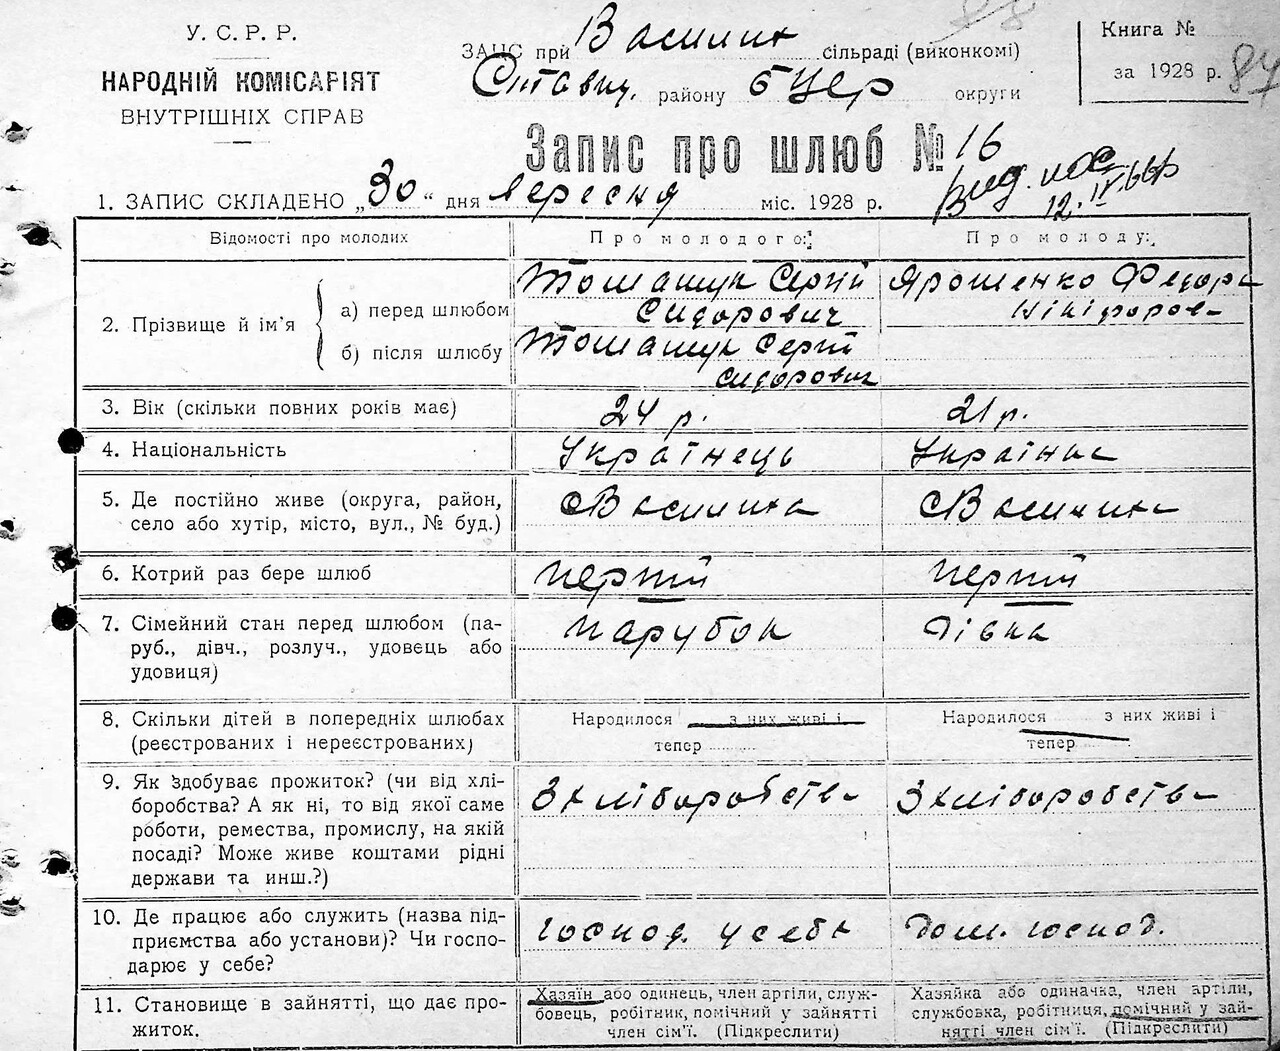 У. С. Р. Р.
НАРОДНІЙ КОМІСАРІЯТ
ВНУТРІШНІХ СПРАВ
ЗАГС при Василих сільраді (виконкомі)
Ставищ. району БЦер округи
Книга №
за 1928 р. 87
Запис про шлюб № 16
1. ЗАПИС СКЛАДЕНО „30" дня вересня міс. 1928 р.
12.IV 66 р
Відомості про молодих
Про молодого:
Про молоду:
2. Прізвище й ім'я
а) перед шлюбом
Томашук Сергій
Сидорович
Ярошенко Федора
Нікіфоров-
б) після шлюбу
Томашук Сергій
Сидорович
3. Вік (скільки повних років має)
24 р.
21 р.
4. Національність
Українець
Українка
5. Де постійно живе (округа, район,
село або хутір, місто, вул., № буд.)
с Василиха
с Василиха
6. Котрий раз бере шлюб
перший
перший
7. Сімейний стан перед шлюбом (па-
руб., дівч., розлуч., удовець або
удовиця)
парубок
дівка
8. Скільки дітей в попередніх шлюбах
(реєстрованих і нереєстрованих)
Народилося з них живі і
тепер
Народилося з них живі і
тепер
9. Як здобуває прожиток? (чи від хлі-
боробства? А як ні, то від якої саме
роботи, ремества, промислу, на якій
посаді? Може живе коштами рідні
держави та инш.?)
З хліборобства
З хліборобства
10. Де працює або служить (назва під-
приємства або установи)? Чи госпо-
дарює у себе?
господ. у себе
дом. господ.
11. Становище в зайнятті, що дає про-
житок.
Хазяїн або одинець, член артіли, служ-
бовець, робітник, помічний у зайнятті
член сім'ї. (Підкреслити)
Хазяйка або одиначка, член артіли,
службовка, робітниця, помічний у зай-
нятті член сім'ї. (Підкреслити)